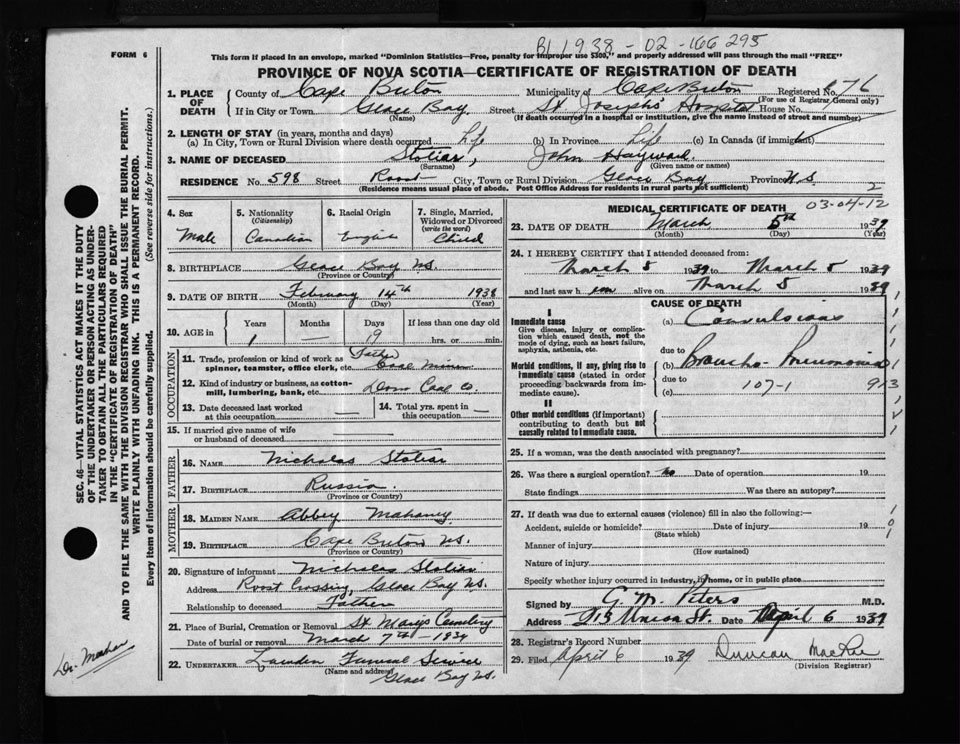 B1 1938 - 02 - 166 295
FORM 6
This form if placed in an envelope, marked "Dominion Statistics—Free, penalty for improper use $300," and properly addressed will pass through the mail "FREE"
PROVINCE OF NOVA SCOTIA—CERTIFICATE OF REGISTRATION OF DEATH
1. PLACE OF DEATH County of Cape Breton Municipality of Cape Breton Registered No. 76
(For use of Registrar General only)
If in City or Town Glace Bay Street St Joseph's Hospital House No.
(Name) (If death occurred in a hospital or institution, give the name instead of street and number)
2. LENGTH OF STAY (in years, months and days)
(a) In City, Town or Rural Division where death occurred Life (b) In Province Life (c) In Canada (if immigrant)
3. NAME OF DECEASED Stotiar, John Hayward
(Surname) (Given name or names)
RESIDENCE No. 598 Street Roost City, Town or Rural Division Glace Bay Province N.S.
(Residence means usual place of abode. Post Office Address for residents in rural parts not sufficient) 2
SEC. 46—VITAL STATISTICS ACT MAKES IT THE DUTY
OF THE UNDERTAKER OR PERSON ACTING AS UNDER-
TAKER TO OBTAIN ALL THE PARTICULARS REQUIRED
IN THE "CERTIFICATE OF REGISTRATION OF DEATH"
AND TO FILE THE SAME WITH THE DIVISION REGISTRAR WHO SHALL ISSUE THE BURIAL PERMIT.
WRITE PLAINLY WITH UNFADING INK. THIS IS A PERMANENT RECORD.
Every item of information should be carefully supplied. (See reverse side for instructions.)
4. Sex Male
5. Nationality (Citizenship) Canadian
6. Racial Origin English
7. Single, Married, Widowed or Divorced (write the word) Child
8. BIRTHPLACE Glace Bay N.S.
(Province or Country)
9. DATE OF BIRTH February 14th 1938
(Month) (Day) (Year)
10. AGE in Years 1 Months — Days 19 If less than one day old hrs. or min.
OCCUPATION
11. Trade, profession or kind of work as spinner, teamster, office clerk, etc. (Father) Coal Miner
12. Kind of industry or business, as cotton-mill, lumbering, bank, etc. Dom Coal Co.
13. Date deceased last worked at this occupation —
14. Total yrs. spent in this occupation —
15. If married give name of wife or husband of deceased
FATHER
16. NAME Nicholas Stotiar
17. BIRTHPLACE Russia
(Province or Country)
MOTHER
18. MAIDEN NAME Abbey Mahaney
19. BIRTHPLACE Cape Breton N.S.
(Province or Country)
20. Signature of informant Nicholas Stotiar
Address Roost Crossing, Glace Bay N.S.
Relationship to deceased Father
21. Place of Burial, Cremation or Removal St Marys Cemetery
Date of burial or removal March 7th - 1939
22. UNDERTAKER Funeral Service
(Name and address) Glace Bay N.S.
MEDICAL CERTIFICATE OF DEATH 03-04-12
23. DATE OF DEATH March 5th 1939
(Month) (Day) (Year)
24. I HEREBY CERTIFY that I attended deceased from:
March 5 1939 to March 5 1939
and last saw h im alive on March 5 1939
CAUSE OF DEATH
I
Immediate cause
Give disease, injury or complication which caused death, not the mode of dying, such as heart failure, asphyxia, asthenia, etc.
(a) Convulsions
due to
Morbid conditions, if any, giving rise to immediate cause (stated in order proceeding backwards from immediate cause).
(b) Broncho-Pneumonia
due to 107-1
(c)
II
Other morbid conditions (if important) contributing to death but not causally related to immediate cause.
25. If a woman, was the death associated with pregnancy?
26. Was there a surgical operation? No Date of operation 19
State findings Was there an autopsy?
27. If death was due to external causes (violence) fill in also the following:—
Accident, suicide or homicide? Date of injury 19
(State which)
Manner of injury
(How sustained)
Nature of injury
Specify whether injury occurred in industry, in home, or in public place
Signed by G. M. Peters M.D.
Address 213 Union St. Date April 6 1939
28. Registrar's Record Number
29. Filed April 6 1939 Duncan MacRae
(Division Registrar)